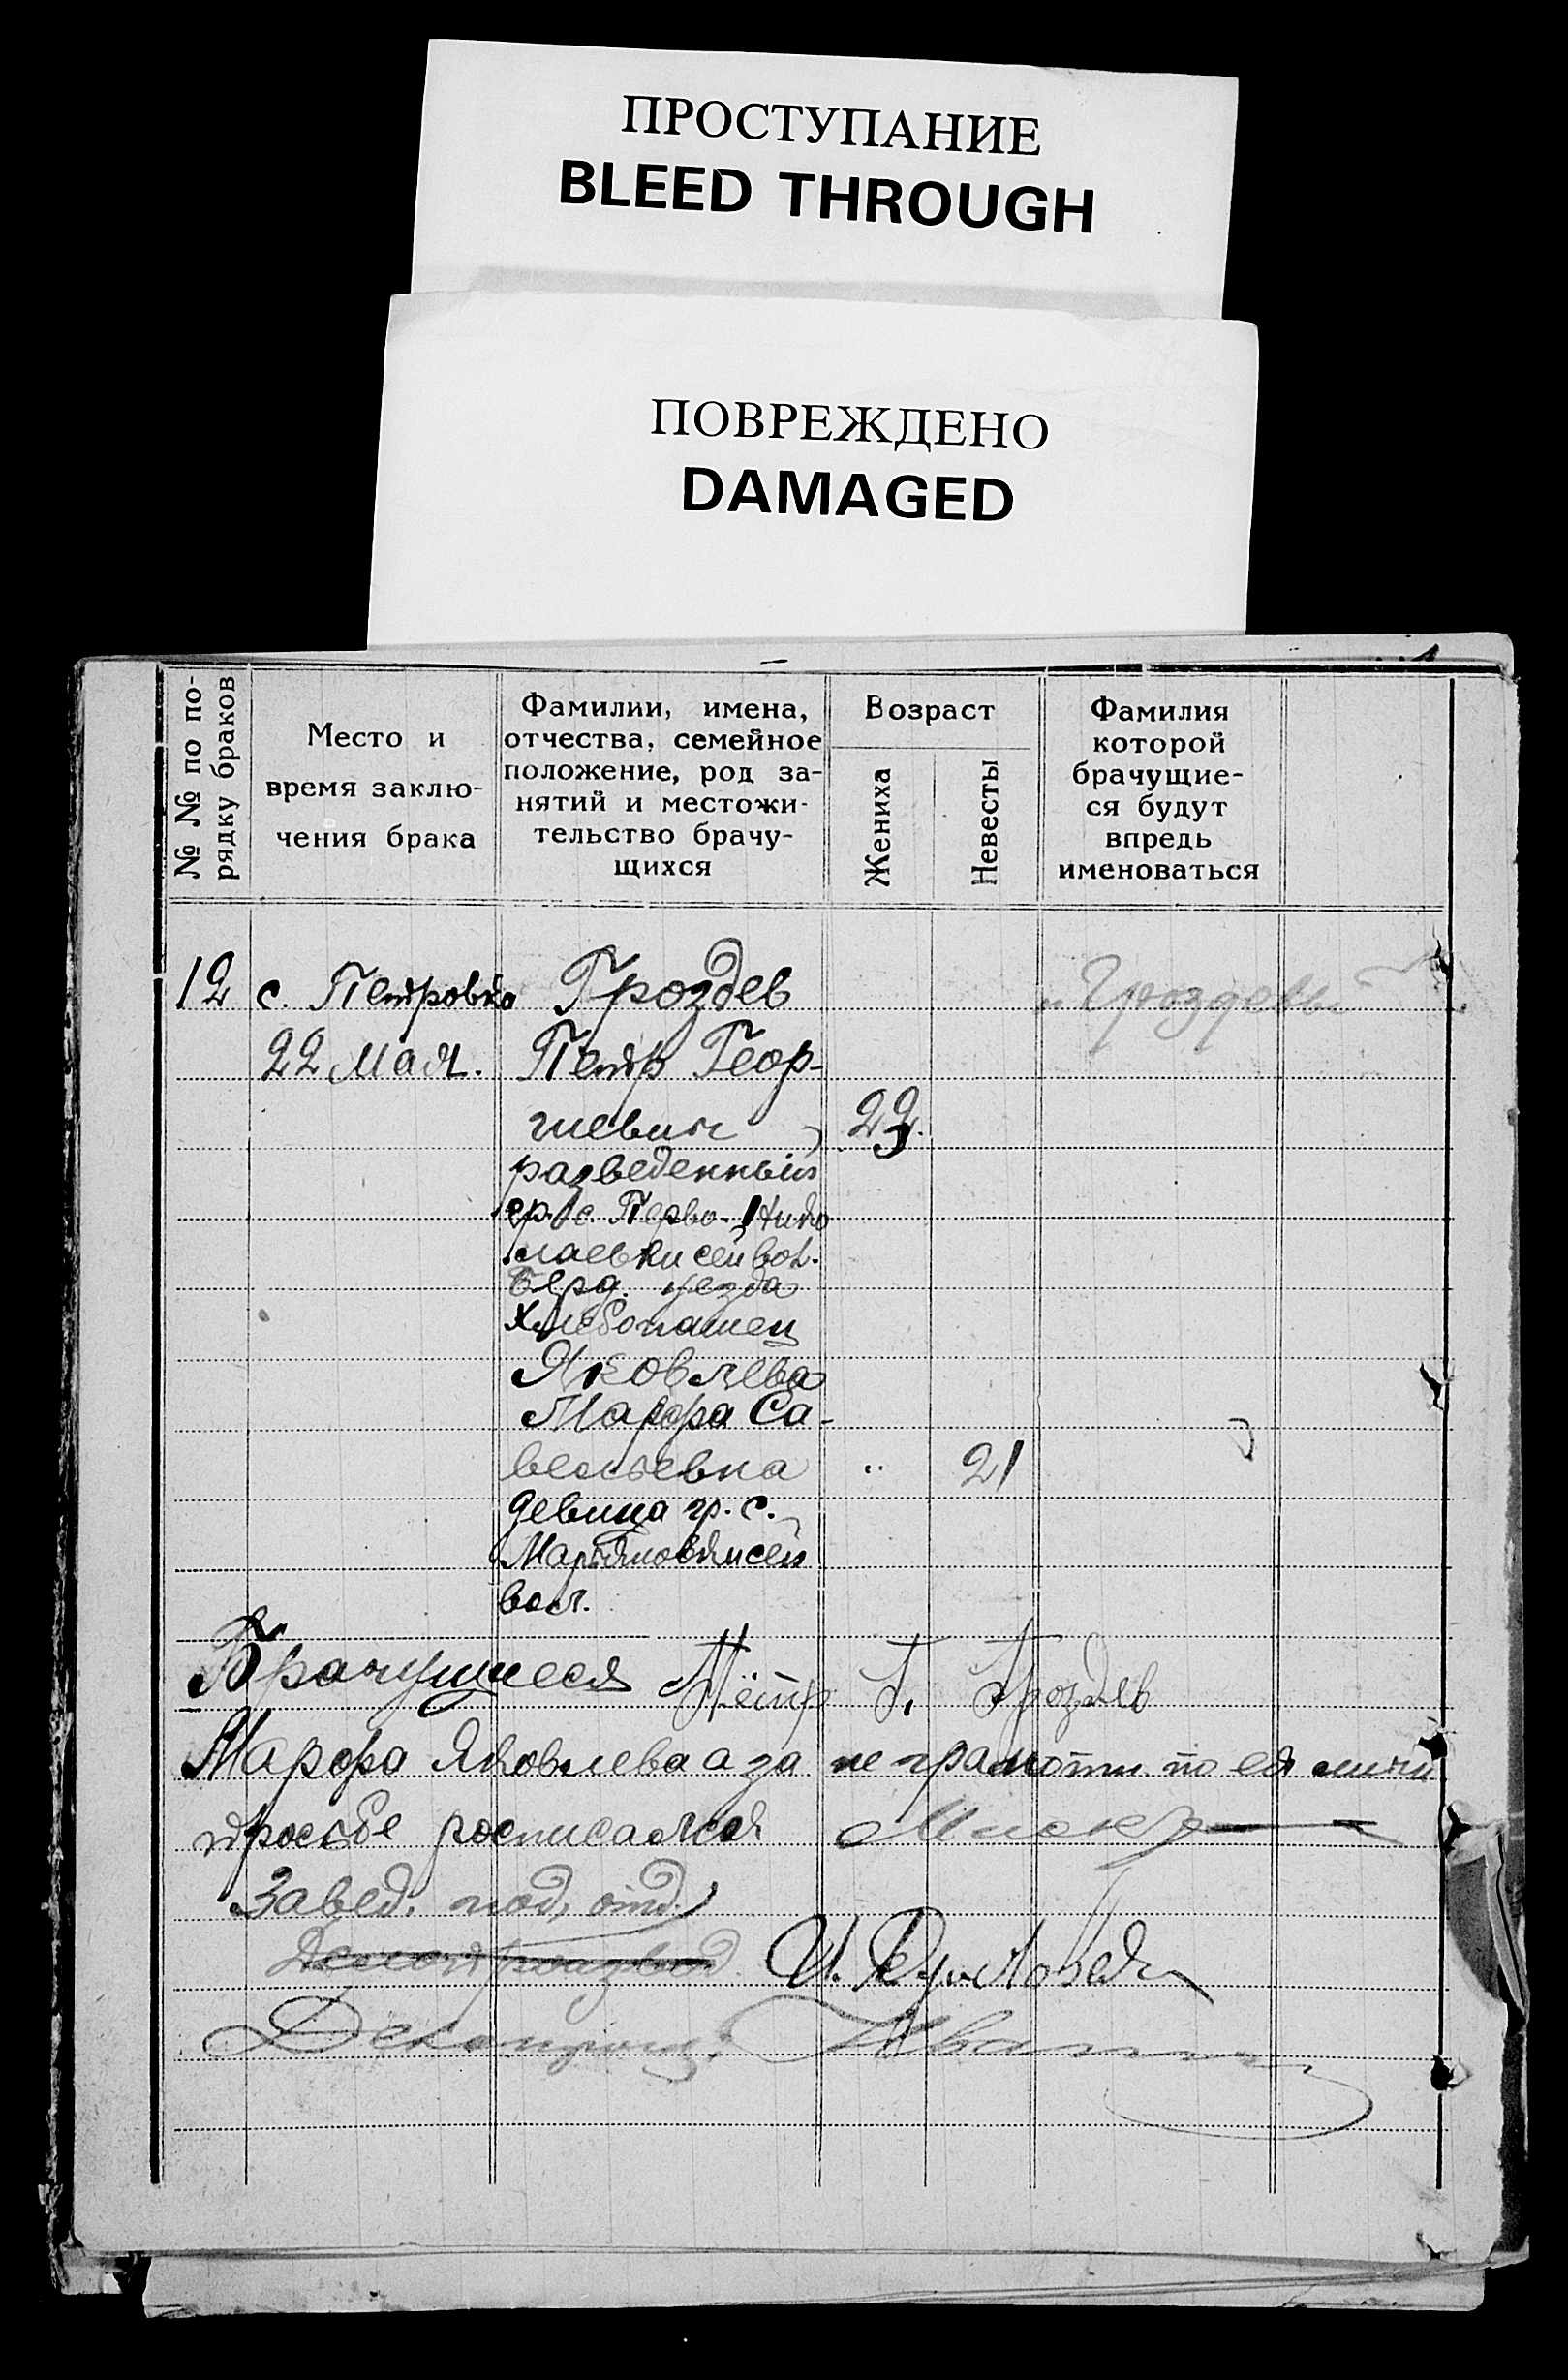 ПРОСТУПАНИЕ
BLEED THROUGH
ПОВРЕЖДЕНО
DAMAGED
№ № по по-
рядку браков
Место и
время заклю-
чения брака
Фамилии, имена,
отчества, семейное
положение, род за-
нятий и местожи-
тельство брачу-
щихся
Возраст
Жениха
Невесты
Фамилия
которой
брачущие-
ся будут
впредь
именоваться
12 с. Петровка Гроздев
22 мая. Петр Геор-
гиевич
разведенный
гр. с. Перво-Нико
лаевкисей вол.
Берд. уезда
хлебопашец
Яковлева
Марфа Са-
вельевна 21
девица гр. с.
Марьяновкисей
вол.
Брачущиеся Пётр Г. Гроздев
Марфа Яковлева а за не грамотн по ея
просьбе росписался
Завед. под, отд.
И.